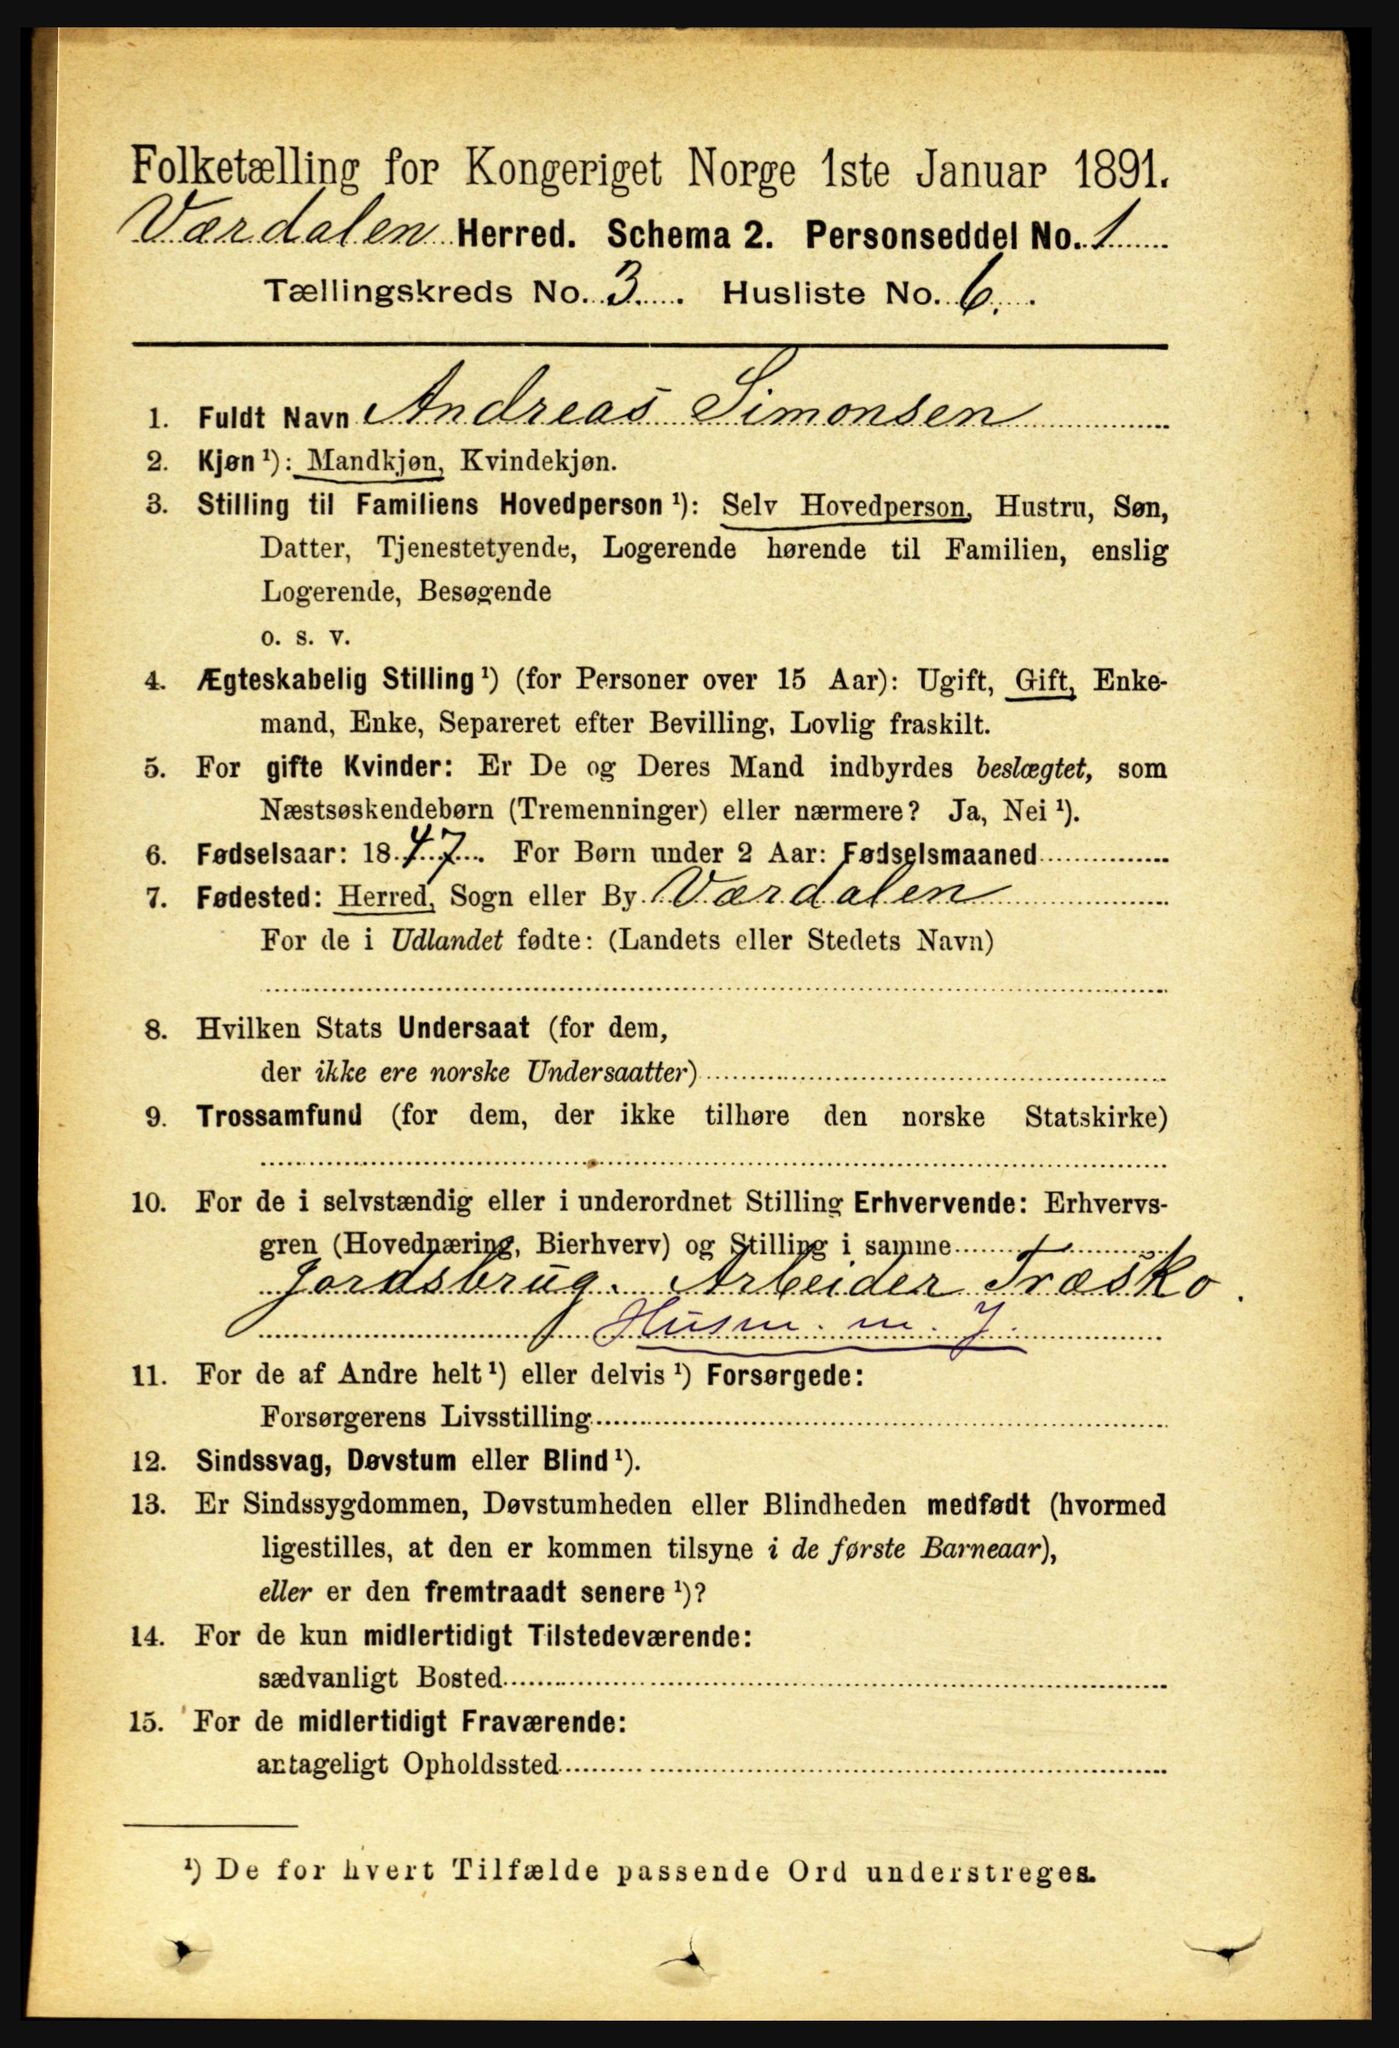 Folketælling for Kongeriget Norge 1ste Januar 1891.
Værdalen Herred. Schema 2. Personseddel No. 1
Tællingskreds No. 3. Husliste No. 6.
1. Fuldt Navn Andreas Simonsen
2. Kjøn ¹): Mandkjøn, Kvindekjøn.
3. Stilling til Familiens Hovedperson ¹): Selv Hovedperson, Hustru, Søn,
Datter, Tjenestetyende, Logerende hørende til Familien, enslig
Logerende, Besøgende
o. s. v.
4. Ægteskabelig Stilling ¹) (for Personer over 15 Aar): Ugift, Gift, Enke-
mand, Enke, Separeret efter Bevilling, Lovlig fraskilt.
5. For gifte Kvinder: Er De og Deres Mand indbyrdes beslægtet, som
Næstsøskendebørn (Tremenninger) eller nærmere? Ja, Nei ¹).
6. Fødselsaar: 1847. For Børn under 2 Aar: Fødselsmaaned
7. Fødested: Herred, Sogn eller By Værdalen
For de i Udlandet fødte: (Landets eller Stedets Navn)
8. Hvilken Stats Undersaat (for dem,
der ikke ere norske Undersaatter)
9. Trossamfund (for dem, der ikke tilhøre den norske Statskirke)
10. For de i selvstændig eller i underordnet Stilling Erhvervende: Erhvervs-
gren (Hovednæring, Bierhverv) og Stilling i samme
Jordsbrug. Arbeider Træsko.
Husm. m. J.
11. For de af Andre helt ¹) eller delvis ¹) Forsørgede:
Forsørgerens Livsstilling
12. Sindssvag, Døvstum eller Blind ¹).
13. Er Sindssygdommen, Døvstumheden eller Blindheden medfødt (hvormed
ligestilles, at den er kommen tilsyne i de første Barneaar),
eller er den fremtraadt senere ¹)?
14. For de kun midlertidigt Tilstedeværende:
sædvanligt Bosted
15. For de midlertidigt Fraværende:
antageligt Opholdssted
¹) De for hvert Tilfælde passende Ord understreges.